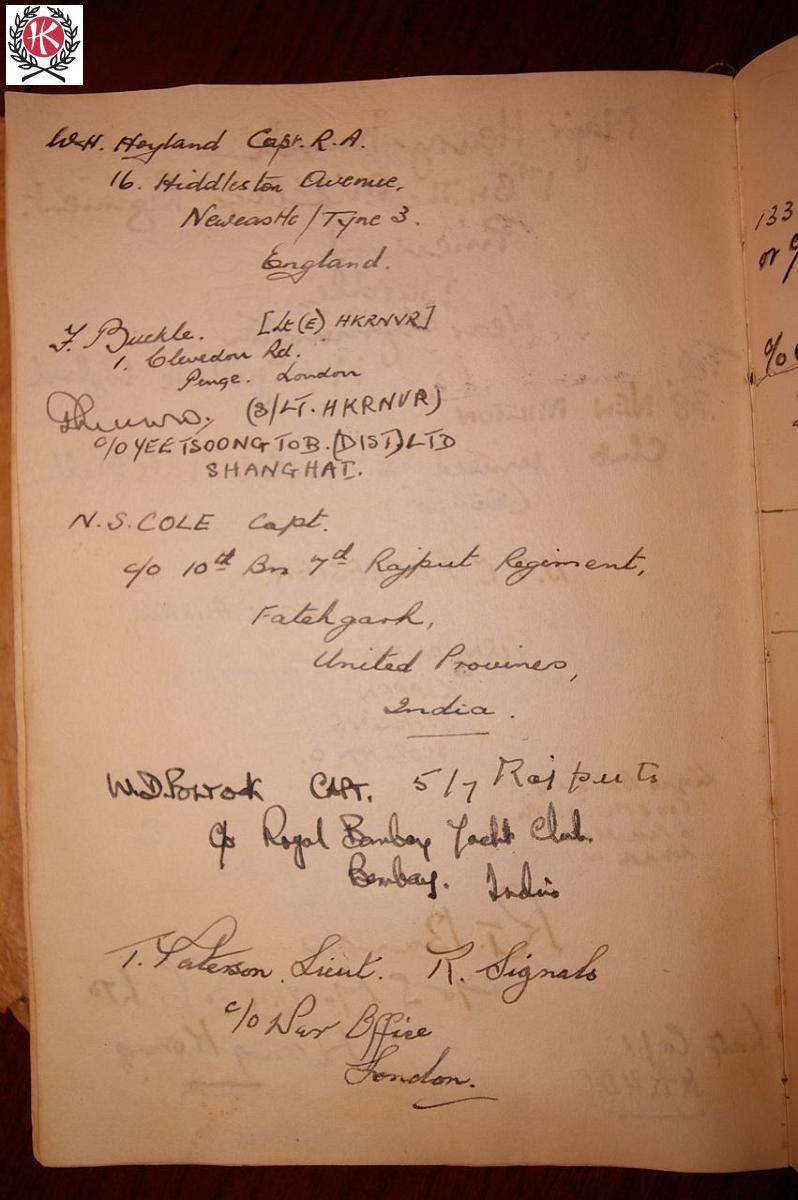 HK
W.H. Hoyland Capt. R.A.
16. Hiddleston Avenue,
Newcastle/Tyne 3.
England.
F. Buckle. [Lt(E) HKRNVR]
1. Clevedon Rd.
Penge. London
(S/LT. HKRNVR)
c/o YEE TSOONG TOB. (DIST) LTD
SHANGHAI.
N.S. COLE Capt.
c/o 10th Bn 7th Rajput Regiment,
Fatehgarh,
United Provinces,
India.
W.D. CAPT. 5/7 Rajputs
c/o Royal Bombay Yacht Club.
Bombay. India
T. Paterson. Lieut. R. Signals
c/o War Office
London.
133
or
c/o